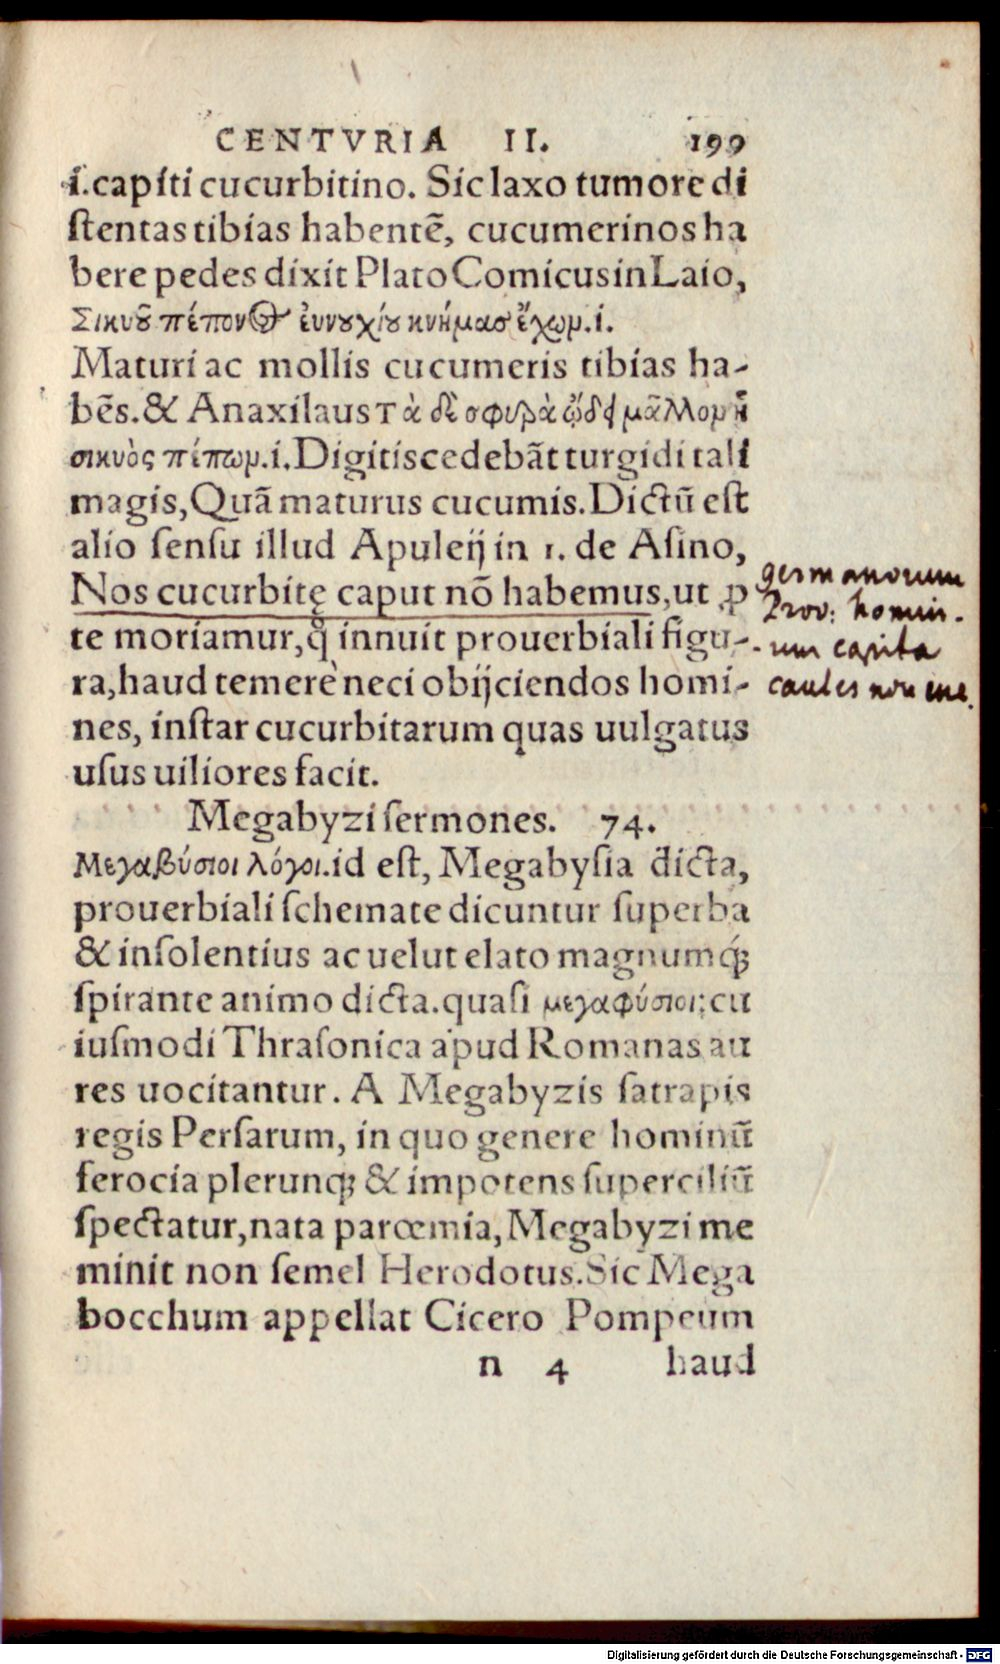 CENTVRIA II. 199
i. capiti cucurbitino. Sic laxo tumore di
ſtentas tibias habentē, cucumerinos ha
bere pedes dixit Plato Comicus in Laio,
Σικυȣ͂ πέπονος ἐυνȣχίȣ κνήμας ἔχων. i.
Maturi ac mollis cucumeris tibias ha-
bēs. & Anaxilaus Τὰ δὲ σφυρὰ ᾤδει μᾶλλον ἢ
σικυὸς πέπων. i. Digitis cedebāt turgidi tali
magis, Quā maturus cucumis. Dictū eſt
alio ſenſu illud Apuleij in 1. de Aſino,
Nos cucurbitę caput nō habemus, ut ꝓ
te moriamur, ꝙ innuit prouerbiali figu-
ra, haud temerè neci obijciendos homi-
nes, inſtar cucurbitarum quas uulgatus
uſus uiliores facit.
germanorum
Prov: homin-
um capita
caules non
Megabyzi ſermones. 74.
Μεγαβύσιοι λόγοι. id eſt, Megabyſia dicta,
prouerbiali ſchemate dicuntur ſuperba
& inſolentius ac uelut elato magnumq́;
ſpirante animo dicta. quaſi μεγαφύσιοι: cu
iuſmodi Thraſonica apud Romanas au
res uocitantur. A Megabyzis ſatrapis
regis Perſarum, in quo genere hominū
ferocia plerunq; & impotens ſuperciliū
ſpectatur, nata parœmia, Megabyzi me
minit non ſemel Herodotus. Sic Mega
bocchum appellat Cicero Pompeium
n 4 haud
Digitalisierung gefördert durch die Deutsche Forschungsgemeinschaft - DFG